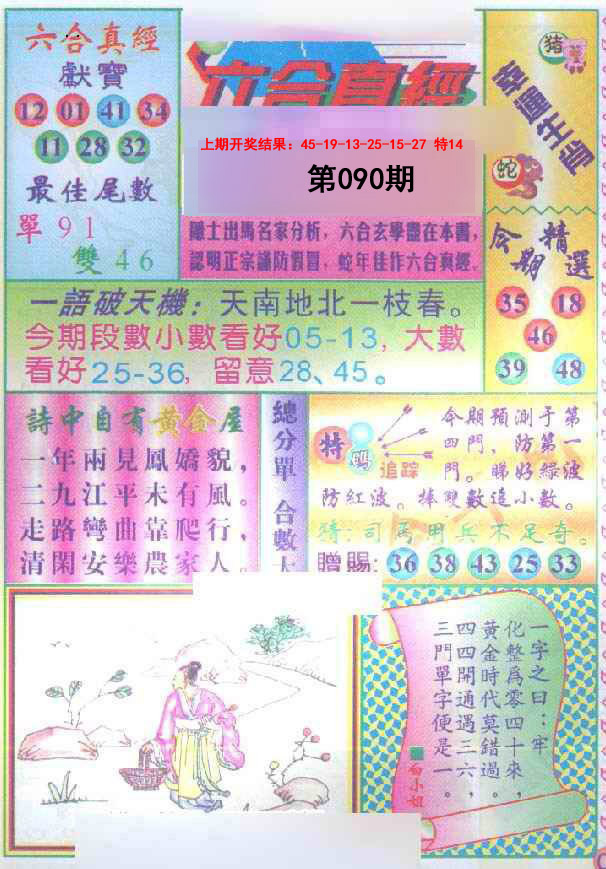 六合真經
獻寶
12 01 41 34
11 28 32
最佳尾數
單 9 1
雙 4 6
六合真經
上期开奖结果: 45-19-13-25-15-27 特14
第090期
隱士出馬名家分析, 六合玄學盡在本書,
認明正宗謹防假冒, 蛇年佳作六合真經.
猪
幸運生肖
蛇
今期精選
35 18
46
39 48
一語破天機: 天南地北一枝春。
今期段數小數看好05-13, 大數
看好25-36, 留意28、45。
詩中自有黃金屋
一年兩見鳳嬌貌,
二九江平未有風。
走路彎曲靠爬行,
清閑安樂農家人。
總分單 合數大
特碼
追踪
今期預測于第
四門, 防第一
門。睇好綠波
防紅波。捧雙數追小數。
猜: 司馬用兵不足奇。
贈賜: 36 38 43 25 33
一字之曰: 牢
化整爲零四十來,
黃金時代莫錯過。
四四開通遇三六,
三門單字便是一。
白小姐